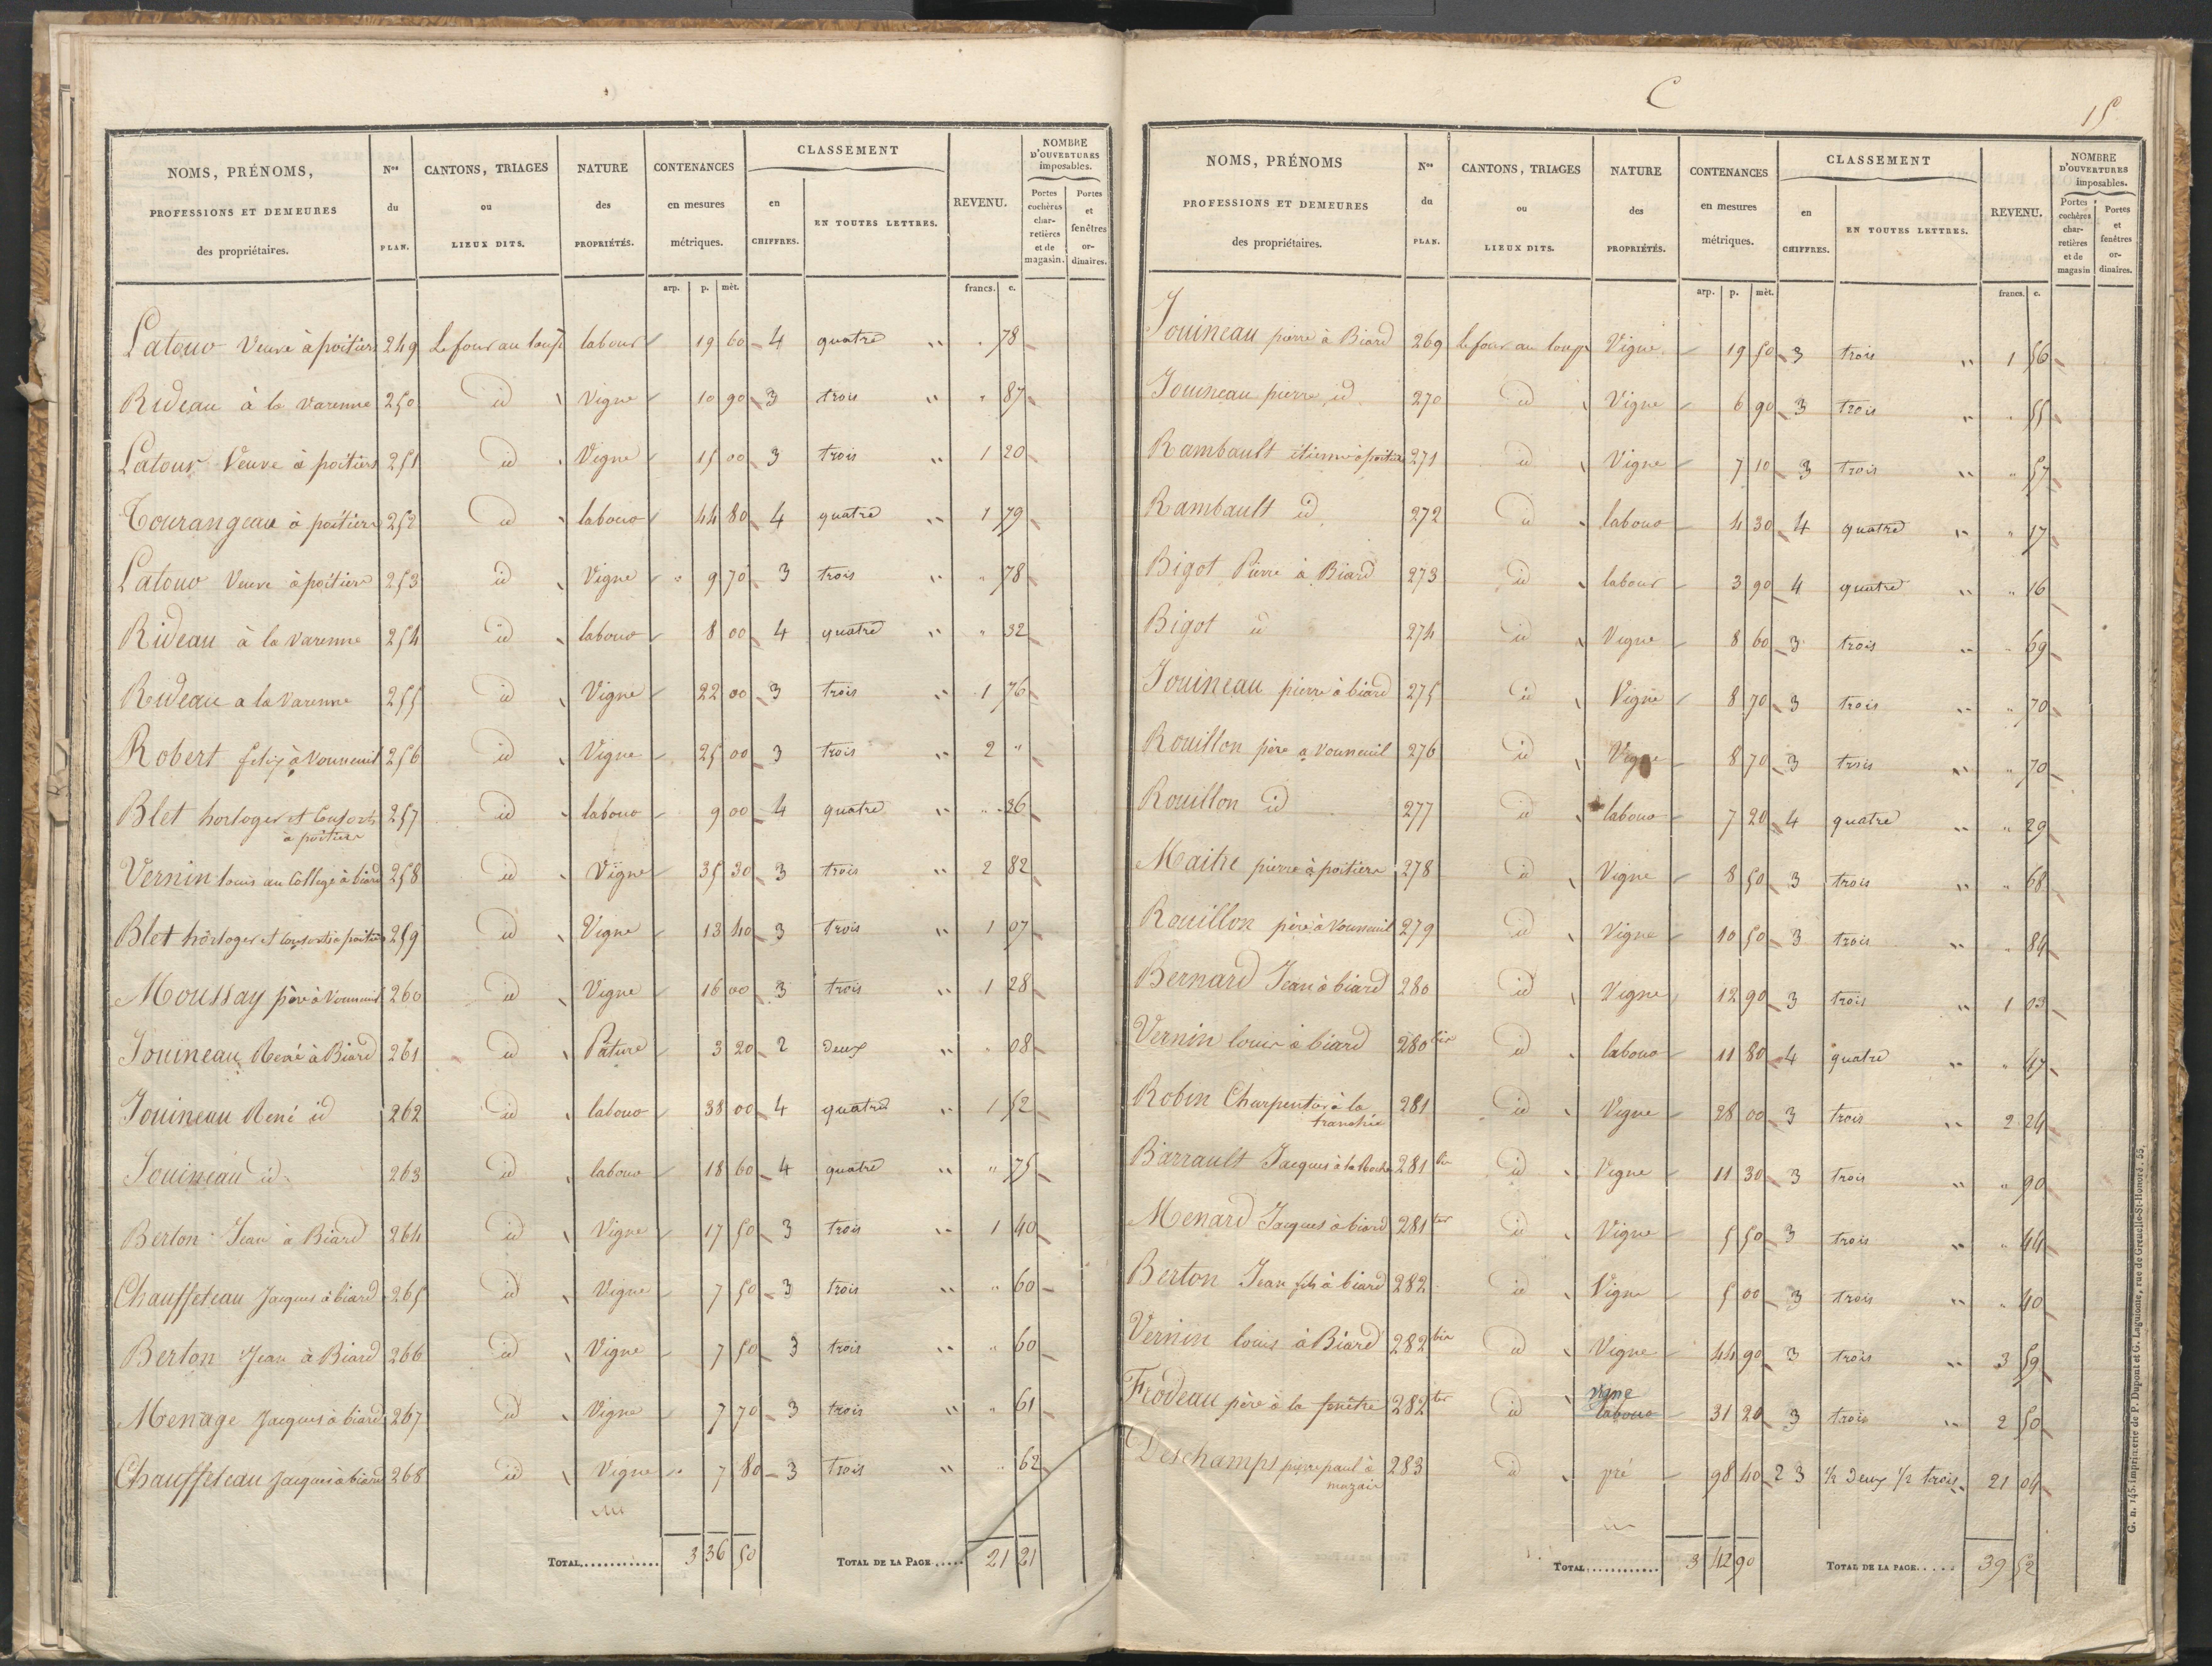 NOMS, PRÉNOMS, PROFESSIONS ET DEMEURES des propriétaires. | Nos du PLAN. | CANTONS, TRIAGES ou LIEUX DITS. | NATURE des PROPRIÉTÉS. | CONTENANCES en mesures métriques. | CLASSEMENT en CHIFFRES. | EN TOUTES LETTRES. | REVENU. | NOMBRE D'OUVERTURES imposables. Portes cochères charretières et de magasin. | Portes et fenêtres ordinaires.
arp. p. mèt. francs. c.
Latour Veuve à poitiers 249 Le four au loup labour 19 60 4 quatre " " 78
Rideau à la varenne 250 id Vigne 10 90 3 trois " " 87
Latour Veuve à poitiers 251 id Vigne 15 00 3 trois " 1 20
Tourangeau à poitiers 252 id labour 44 80 4 quatre " 1 79
Latour Veuve à poitiers 253 id Vigne " 9 70 3 trois " " 78
Rideau à la varenne 254 id labour 8 00 4 quatre " " 32
Rideau a la Varenne 255 id Vigne 22 00 3 trois " 1 76
Robert felix à Vouneuil 256 id Vigne 25 00 3 trois " 2 "
Blet horloger et Consorts à poitiers 257 id labour 9 00 4 quatre " " 36
Vernin louis au College à biard 258 id Vigne 35 30 3 trois " 2 82
Blet horloger et Consorts à poitiers 259 id Vigne 13 40 3 trois " 1 07
Moussay père à Vouneuil 260 id Vigne 16 00 3 trois " 1 28
Jouineau René à Biard 261 id Pature 3 20 2 deux " " 08
Jouineau René id 262 id labour 38 00 4 quatre " 1 52
Jouineau id 263 id labour 18 60 4 quatre " " 75
Berton Jean à Biard 264 id Vigne 17 50 3 trois " 1 40
Chauffeteau Jacques à biard 265 id Vigne 7 50 3 trois " " 60
Berton Jean à Biard 266 id Vigne 7 50 3 trois " " 60
Menage Jacques à biard 267 id Vigne 7 70 3 trois " " 61
Chauffeteau Jacques à biard 268 id Vigne " 7 80 3 trois " " 62
TOTAL............. 3 36 50 TOTAL DE LA PAGE..... 21 21
C
15
NOMS, PRÉNOMS PROFESSIONS ET DEMEURES des propriétaires. | Nos du PLAN. | CANTONS, TRIAGES ou LIEUX DITS. | NATURE des PROPRIÉTÉS. | CONTENANCES en mesures métriques. | CLASSEMENT en CHIFFRES. | EN TOUTES LETTRES. | REVENU. | NOMBRE D'OUVERTURES imposables. Portes cochères charretières et de magasin | Portes et fenêtres ordinaires.
arp. p. mèt. francs. c.
Jouineau pierre à Biard 269 le four au loup Vigne 19 50 3 trois " 1 56
Jouineau pierre id 270 id Vigne 6 90 3 trois " " 55
Rambault étienne à poitiers 271 id Vigne 7 10 3 trois " " 57
Rambault id 272 id labour 4 30 4 quatre " " 17
Bigot Pierre à Biard 273 id labour 3 90 4 quatre " " 16
Bigot id 274 id Vigne 8 60 3 trois " " 69
Jouineau pierre à biard 275 id Vigne 8 70 3 trois " " 70
Rouillon père a Vouneuil 276 id Vigne 8 70 3 trois " " 70
Rouillon id 277 id labour 7 20 4 quatre " " 29
Maitre pierre à poitiers 278 id Vigne 8 50 3 trois " " 68
Rouillon père à Vouneuil 279 id Vigne 10 50 3 trois " " 84
Bernard Jean à biard 280 id Vigne 12 90 3 trois " 1 03
Vernin louis à biard 280 bis id labour 11 80 4 quatre " " 47
Robin Charpentier à la tranchée 281 id Vigne 28 00 3 trois " 2 24
Barrault Jacques à la Roche 281 bis id Vigne 11 30 3 trois " " 90
Menard Jacques à biard 281 ter id Vigne 5 50 3 trois " " 44
Berton Jean fils à biard 282 id Vigne 5 00 3 trois " " 40
Vernin louis à Biard 282 bis id Vigne 44 90 3 trois " 3 59
Frodeau père à la fenêtre 282 ter id vigne labour 31 20 3 trois " 2 50
Deschamps pierre paul à mazair 283 id pré 98 40 2 3 1/2 deux 1/2 trois 21 04
TOTAL............ 3 42 90 TOTAL DE LA PAGE..... 39 52
G. n. 145. imprimerie de P. Dupont et G. Laguionie, rue de Grenelle-St-Honoré, 55.